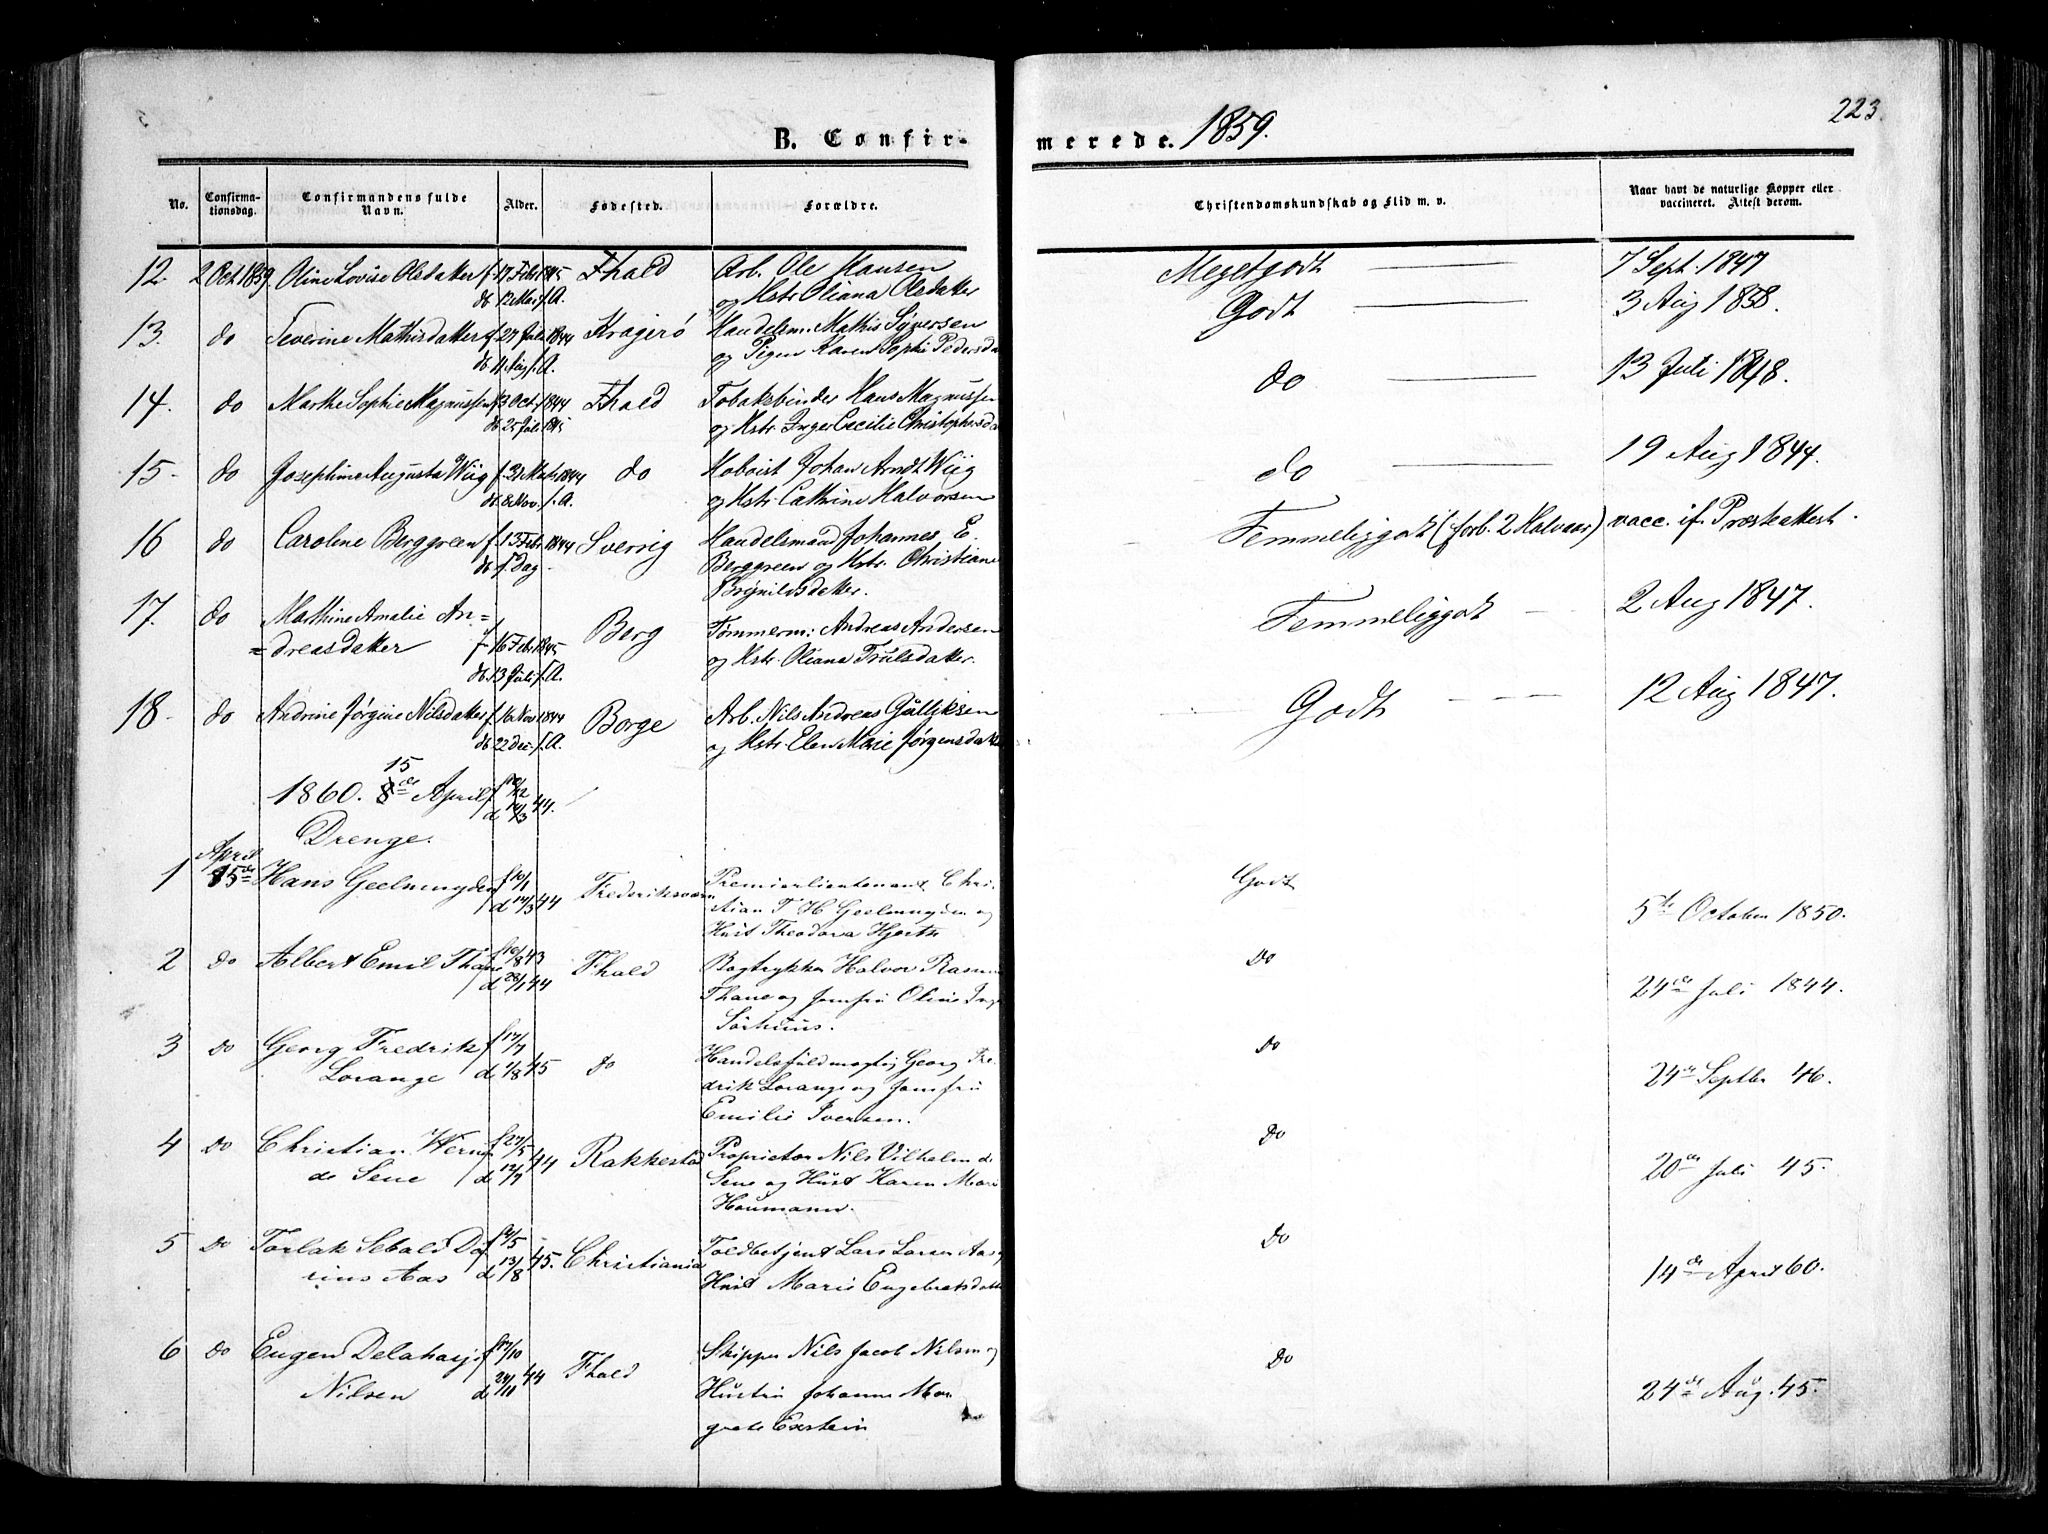 223.
B. Confirmerede. 1859.
No. Confirmationsdag. Confirmandens fulde Navn. Alder. Fødested. Forældre. Christendomskundskab og Flid m. v. Naar havt de naturlige Kopper eller vaccineret. Attest derom.
12. 2 Oct. 1859. Oline Lovise Olsdatter f. 17 Febr 1845 Fhald Arb. Ole Hansen Megetgodt 7 Sept. 1847
db. 12 Mar. s. A. og Hstr. Oliana Olsdatter
13. do Severine Mathisdatter f. 27 Juli 1844 Kragerø Handelsm. Mathis Syversen Godt 3 Aug 1858.
db. 11 Aug s. A. og Pigen Karen Sophie Pedersda
14. do Marthe Sophie Magnussen f. 3 Oct. 1844 Fhald Tobaksbinder Hans Magnussen do 13 Juli 1848.
db. 25 Juli 1845 og Hstr. Inger Cecilie Christophersda
15. do Josephine Augusta Wiig f. 31 Mai 1844 do Hoboist Johan Arndt Wiig do 19 Aug 1844.
db. 8 Nov. s. A. og Hstr. Cathrine Halvorsen
16 do Caroline Berggreen f. 13 Febr 1844 Sverrig Handelsmand Johannes E. Temmeliggodt (forb. 2 Halvaar) vacc. if. Præsteattest.
db. s. Dag. Berggreen og Hstr. Christiane
Brynildsdatter.
17. do Mathine Amalie An=
=dreasdatter f. 16 Febr 1845 Berg Tømmerm: Andreas Andersen Temmeliggodt 2 Aug 1847.
db. 13 Juli s. A. og Hstr. Oliana Trulsdatter.
18. do Andrine Jørgine Nilsdatter f. 16 Nov 1844 Borge Arb. Nils Andreas Gulliksen Godt 12 Aug 1847.
db. 22 Dec. s. A. og Hstr. Elen Marie Jørgensdatt
15
1860. 8de April
Drenge.
1 April 15de Hans Geelmuyden f 10/1 Frederiksværn Premierlieutenant Chri- Godt 5te October 1850.
d 14/3 44 stian T H Geelmuyden og
Hust Theodora Hjorth
2 Do Albert Emil Thane f 10/8 43 Fhald Bogtrykker Halvor Rasmu Do 24de Juli 1844.
d 28/1 44 Thane og Jomfru Oline Ing
Sørhuus.
3 Do Georg Fredrik f 17/7 Do Handelsfuldmægtig Georg Fre- Do 24de Septbr 46.
Lorange d 1/8 45 drik Lorange og Jomfru
Emilie Iversen.
4 Do Christian Wern f 27/5 Rakkestad Proprietær Nils Vilhelm de Do 20de Juli 45.
de Seue d 12/7 44 Seue og Hust Karen Mari
Houmann.
5 Do Torlak Sebald Da f 14/5 Christiania Toldbetjent Lars Larsen Aas og Do 14de April 60.
rius Aas d 13/8 45. Hust Marie Engebretsdatte
6 Do Eugen Delahaye f 17/10 Fhald Skipper Nils Jacob Nilsen og Do 24de Aug. 45.
Nilsen d 24/11 44 Hustru Johanne Mar
grete Exstein